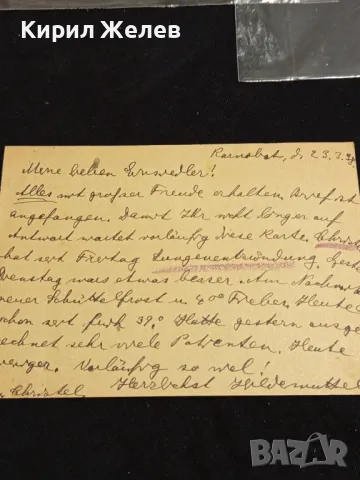 Кирил Желев
Karnobat, d. 23.3.
Meine lieben Einsiedler!
Alles mit grosser Freude erhalten. Brief ist
angefangen. Damit Ihr nicht länger auf
Antwort wartet vorläufig diese Karte. Christ
hat seit Freitag Lungenentzündung. Geste
Dienstag wars etwas besser. Am Nachm
neuer Schüttelfrost u. 40° Fieber. Heute
schon seit früh 39.° Hatte gestern ausge
rechnet sehr viele Patienten. Heute
weniger. Vorläufig so viel!
Christel Herzlichst Hildemuttel
BAZAR